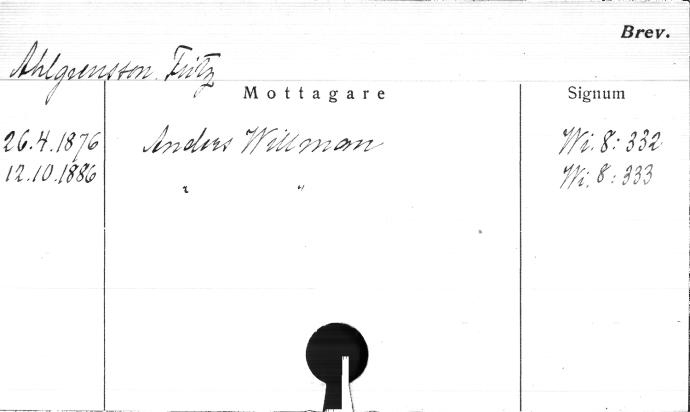 Brev.
Ahlgrensson. Fritz
Mottagare Signum
26.4.1876 Anders Willman Wi. 8: 332
12.10.1886 " " Wi. 8: 333